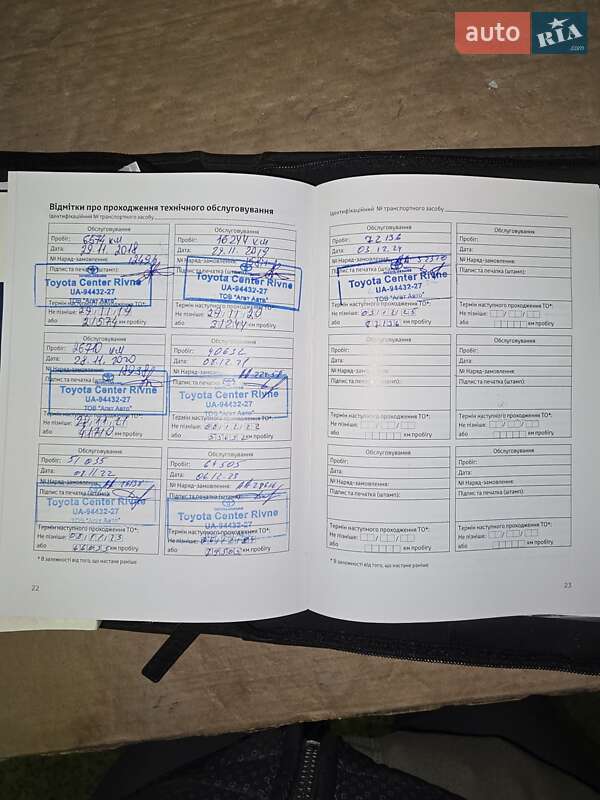 auto RIA .com
Відмітки про проходження технічного обслуговування
Ідентифікаційний № транспортного засобу
Обслуговування
Пробіг: 6574 км
Дата: 29.11.2018
№ Наряд-замовлення:
Підпис та печатка (штамп):
Toyota Center Rivne
UA-94432-27
ТОВ "Агат Авто"
Термін наступного проходження ТО*:
Не пізніше: 29.11.19
або 21574 км пробігу
Обслуговування
Пробіг: 16244 км
Дата: 29.11.2019
№ Наряд-замовлення:
Підпис та печатка (штамп):
Toyota Center Rivne
UA-94432-27
ТОВ "Агат Авто"
Термін наступного проходження ТО*:
Не пізніше: 29.11.20
або 31244 км пробігу
Обслуговування
Пробіг: 26710 км
Дата: 28.11.2020
№ Наряд-замовлення:
Підпис та печатка (штамп):
Toyota Center Rivne
UA-94432-27
ТОВ "Агат Авто"
Термін наступного проходження ТО*:
Не пізніше: 28.11.21
або 41710 км пробігу
Обслуговування
Пробіг: 40632
Дата: 08.12.21
№ Наряд-замовлення:
Підпис та печатка (штамп):
Toyota Center Rivne
UA-94432-27
ТОВ "Агат Авто"
Термін наступного проходження ТО*:
Не пізніше:
або км пробігу
Обслуговування
Пробіг: 51035
Дата:
№ Наряд-замовлення:
Підпис та печатка (штамп):
Toyota Center Rivne
UA-94432-27
ТОВ "Агат Авто"
Термін наступного проходження ТО*:
Не пізніше:
або км пробігу
Обслуговування
Пробіг: 61505
Дата: 06.12.23
№ Наряд-замовлення:
Підпис та печатка (штамп):
Toyota Center Rivne
UA-94432-27
ТОВ "Агат Авто"
Термін наступного проходження ТО*:
Не пізніше:
або км пробігу
* В залежності від того, що настане раніше
22
Ідентифікаційний № транспортного засобу
Обслуговування
Пробіг: 72136
Дата: 03.12.24
№ Наряд-замовлення:
Підпис та печатка (штамп):
Toyota Center Rivne
UA-94432-27
ТОВ "Агат Авто"
Термін наступного проходження ТО*:
Не пізніше: 03.12.25
або 87136 км пробігу
Обслуговування
Пробіг:
Дата:
№ Наряд-замовлення:
Підпис та печатка (штамп):
Термін наступного проходження ТО*:
Не пізніше:
або км пробігу
Обслуговування
Пробіг:
Дата:
№ Наряд-замовлення:
Підпис та печатка (штамп):
Термін наступного проходження ТО*:
Не пізніше:
або км пробігу
Обслуговування
Пробіг:
Дата:
№ Наряд-замовлення:
Підпис та печатка (штамп):
Термін наступного проходження ТО*:
Не пізніше:
або км пробігу
Обслуговування
Пробіг:
Дата:
№ Наряд-замовлення:
Підпис та печатка (штамп):
Термін наступного проходження ТО*:
Не пізніше:
або км пробігу
Обслуговування
Пробіг:
Дата:
№ Наряд-замовлення:
Підпис та печатка (штамп):
Термін наступного проходження ТО*:
Не пізніше:
або км пробігу
* В залежності від того, що настане раніше
23